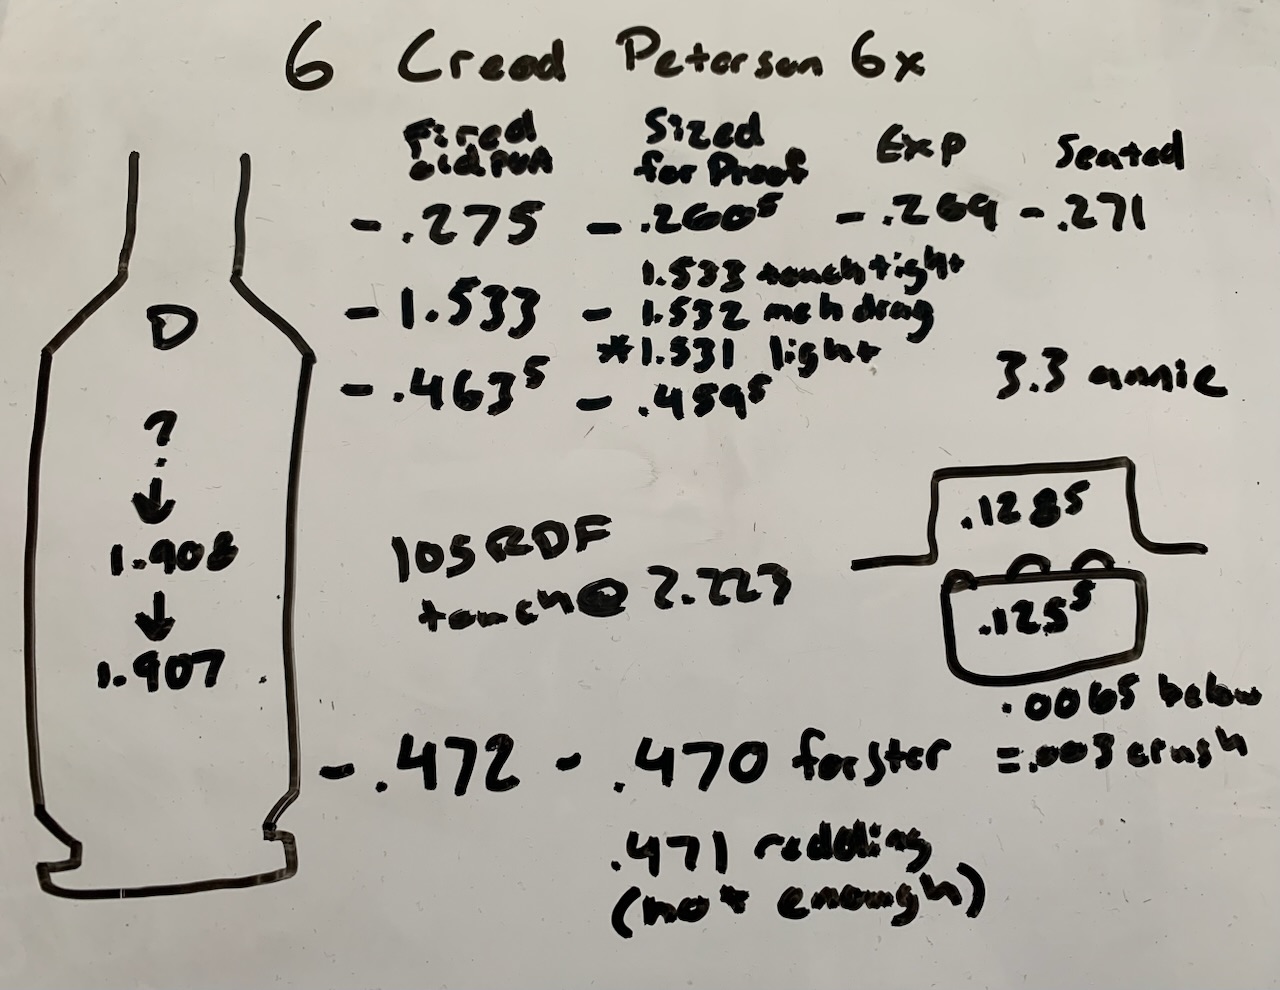 6 Creed Peterson 6x
Fired Sized Exp Seated
old PVA for Proof
- .275 - .260⁵ - .269 - .271
1.533 touch tight
- 1.533 - 1.532 meh drag
*1.531 light
- .463⁵ - .459⁵
3.3 annie
D
?
↓
1.908
↓
1.907
105 RDF
touch @ 2.223
.1285
.125⁵
.0065 below
= .003 crush
- .472 - .470 forster
.471 redding
(not enough)